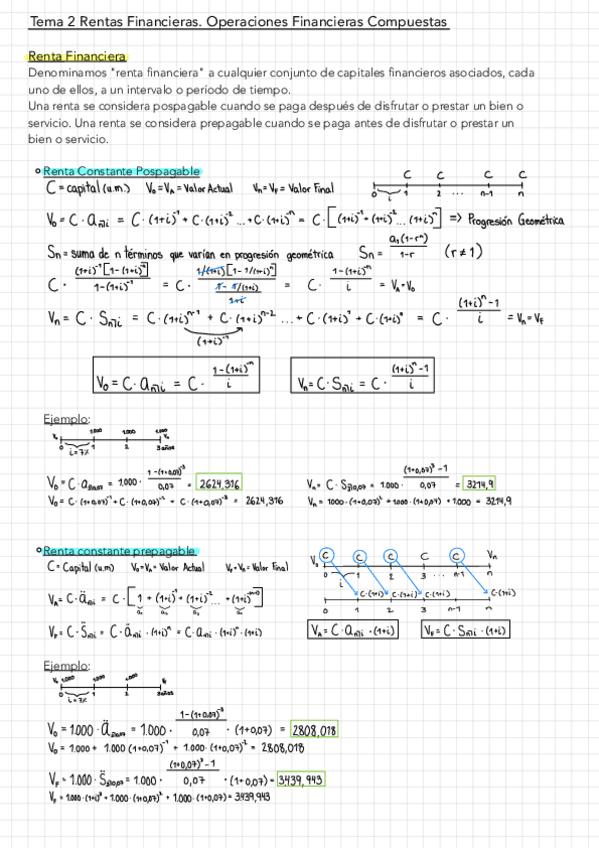 Tema 2 Rentas Financieras. Operaciones Financieras Compuestas
Renta Financiera
Denominamos "renta financiera" a cualquier conjunto de capitales financieros asociados, cada
uno de ellos, a un intervalo o período de tiempo.
Una renta se considera pospagable cuando se paga después de disfrutar o prestar un bien o
servicio. Una renta se considera prepagable cuando se paga antes de disfrutar o prestar un
bien o servicio.
Renta Constante Pospagable
C = capital (u.m.) V₀=V_A = Valor Actual Vn=V_F = Valor Final
C C C C
0 1 2 ... n-1 n
i
V₀ = C · a n¬i = C · (1+i)⁻¹ + C · (1+i)⁻² ... + C · (1+i)⁻ⁿ = C · [(1+i)⁻¹ + (1+i)⁻² ... (1+i)⁻ⁿ] => Progresión Geométrica
Sn = suma de n términos que varían en progresión geométrica Sn = a₁(1-rⁿ)/1-r (r ≠ 1)
C · (1+i)⁻¹[1-(1+i)⁻ⁿ]/1-(1+i)⁻¹ = C · 1/(1+i)[1-1/(1+i)ⁿ]/1-1/(1+i) = C · 1-(1+i)⁻ⁿ/i = V_A=V₀
Vn = C · S n¬i = C · (1+i)ⁿ⁻¹ + C · (1+i)ⁿ⁻² ... + C · (1+i)¹ + C · (1+i)⁰ = C · (1+i)ⁿ-1/i = Vn=V_F
(1+i)⁻¹
V₀ = C · a n¬i = C · 1-(1+i)⁻ⁿ/i
Vn = C · S n¬i = C · (1+i)ⁿ-1/i
Ejemplo:
1.000 1.000 1.000
V₀ V₃
0 1 2 3 años
i = 7%
V₀ = C · a 3¬0,07 = 1.000 · 1-(1+0,07)⁻³/0,07 = 2624,316
Vn = C · S 3¬0,07 = 1.000 · (1+0,07)³-1/0,07 = 3214,9
V₀ = C · (1+0,07)⁻¹ + C · (1+0,07)⁻² + C · (1+0,07)⁻³ = 2624,316
Vn = 1000 · (1+0,07)² + 1000 · (1+0,07) + 1.000 = 3214,9
Renta constante prepagable
C = Capital (u.m) V₀=V_A = Valor Actual Vn=V_F = Valor Final
V₀ C C C C C Vn
0 1 2 3 ... n-1 n
i
C·(1+i) C·(1+i) C·(1+i) C·(1+i)
0 1 2 3 n-1 n
V_A = C · ä n¬i = C · [1 + (1+i)⁻¹ + (1+i)⁻² ... + (1+i)⁻⁽ⁿ⁻¹⁾]
V_F = C · S̈ n¬i = C · ä n¬i · (1+i)ⁿ = C · a n¬i · (1+i)ⁿ · (1+i)
V_A = C · a n¬i · (1+i)
V_F = C · S n¬i · (1+i)
Ejemplo:
V₀ 1.000 1.000 1.000 V_F
0 1 2 3 años
i = 7%
V₀ = 1.000 · ä 3¬0,07 = 1.000 · 1-(1+0,07)⁻³/0,07 · (1+0,07) = 2808,018
V₀ = 1.000 + 1.000 (1+0,07)⁻¹ + 1.000 · (1+0,07)⁻² = 2808,018
V_F = 1.000 · S̈ 3¬0,07 = 1.000 · (1+0,07)³-1/0,07 · (1+0,07) = 3439,943
V_F = 1.000 · (1+i)³ + 1.000 · (1+0,07)² + 1.000 · (1+0,07) = 3439,943